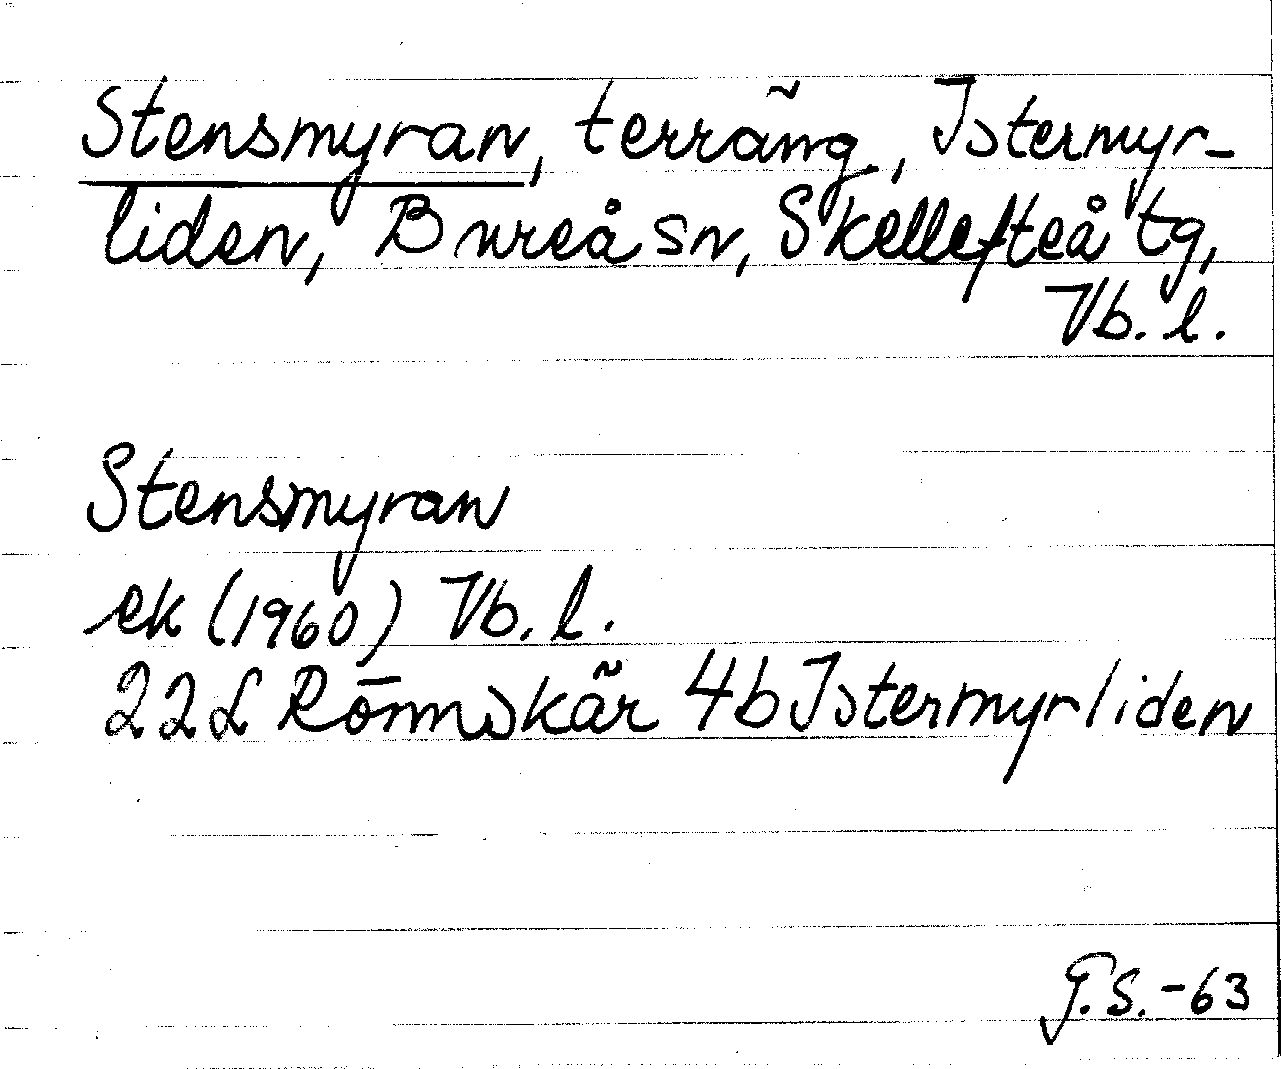 Stensmyran, terräng, Istermyr-
liden, Bureå sn, Skellefteå tg,
Vb. l.
Stensmyran
ek (1960) Vb. l.
22L Rönnskär 4b Istermyrliden
G.S. -63